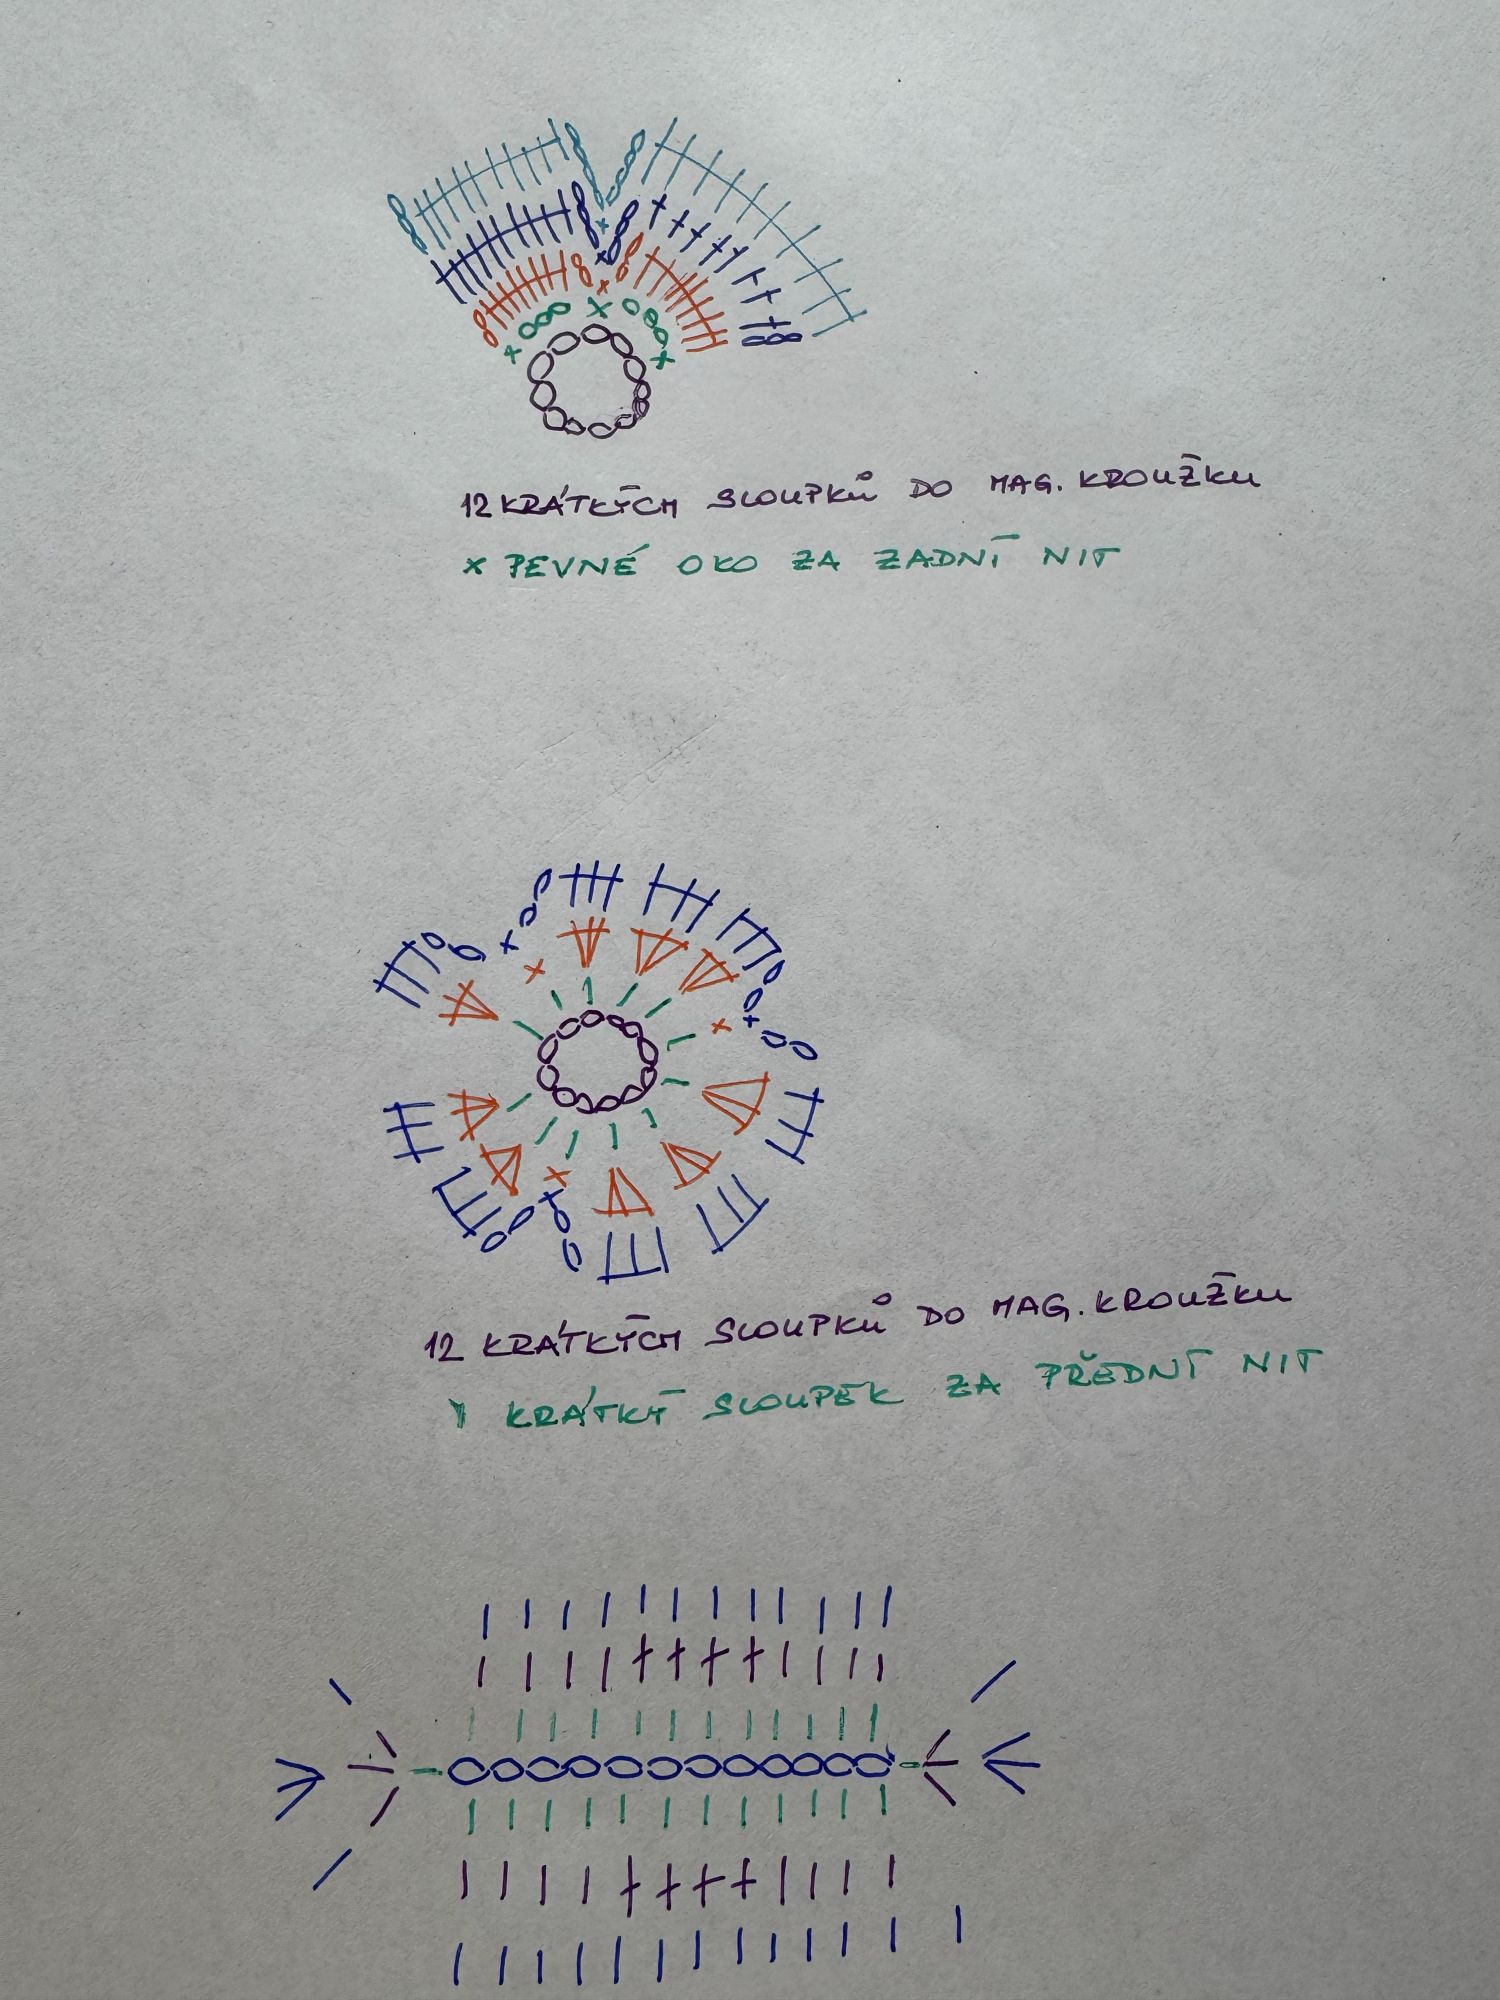 12 KRÁTKÝCH SLOUPKŮ DO MAG. KROUŽKU
x PEVNÉ OKO ZA ZADNÍ NIT
12 KRÁTKÝCH SLOUPKŮ DO MAG. KROUŽKU
KRÁTKÝ SLOUPEK ZA PŘEDNÍ NIT